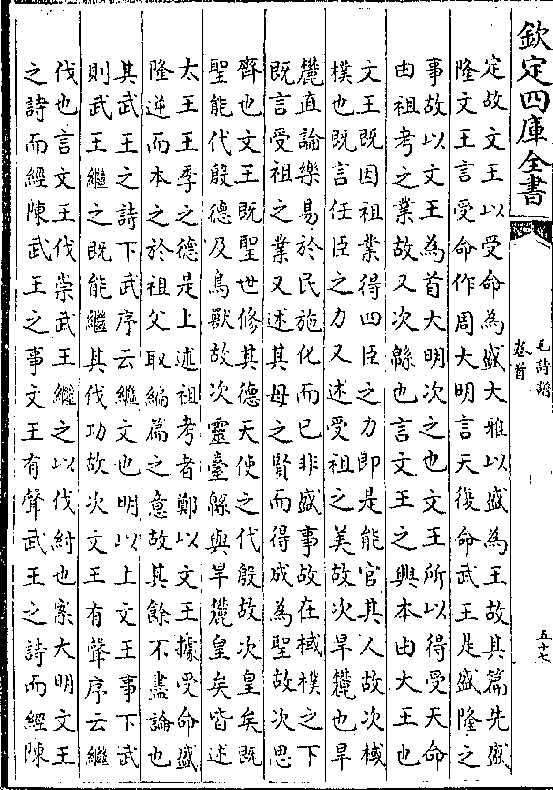 欽定四庫全書
毛詩譜
卷首
五十七
定故文王以受命為盛大雅以盛為王故其篇先盛
隆文王言受命作周大明言天復命武王是盛隆之
事故以文王為首大明次之也文王所以得受天命
由祖考之業故又次緜也言文王之興本由大王也
文王既因祖業得四臣之力即是能官其人故次棫
樸也既言任臣之力又述受祖之美故次旱麓也旱
麓直論樂易於民施化而已非盛事故在棫樸之下
既言受祖之業又述其母之賢而得成為聖故次思
齊也文王既聖世修其德天使之代殷故次皇矣既
聖能代殷德及鳥獸故次靈臺緜與旱麓皇矣皆述
太王王季之德是上述祖考者鄭以文王據受命盛
隆逆而本之於祖父取編篇之意故其餘不盡論也
其武王之詩下武序云繼文也明以上文王事下武
則武王繼之既能繼其伐功故次文王有聲序云繼
伐也言文王伐崇武王繼之以伐紂也案大明文王
之詩而經陳武王之事文王有聲武王之詩而經陳